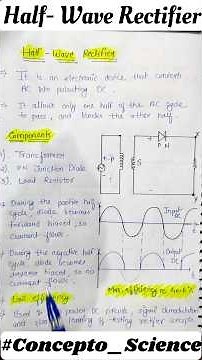 Half- Wave Rectifier
Half - Wave Rectifier
⇒ It is an electronic device that converts
AC into pulsating DC.
⇒ It allows only one half of the AC cycle
to pass, and blocks the other half
Components
1). Transformer
2). PN Junction Diode
3). Load Resistor
P N
S
⇒ During the positive half
cycle, diode becomes
forward biased, so
current flows.
Input
DC
⇒ During the negative half
cycle diode becomes
reverse biased, so no
current flows.
Output
DC
Max. efficiency is
efficiency
⇒ Used in low power DC circuits, signal demodulation
and
#Concepto_Science